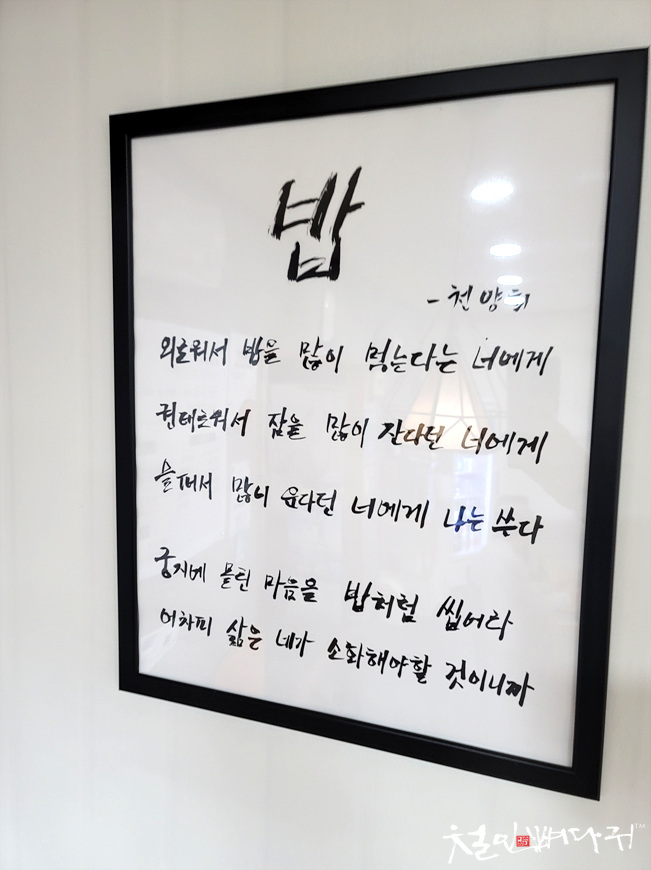 밥
- 천양희
외로워서 밥을 많이 먹는다는 너에게
권태로워서 잠을 많이 잔다던 너에게
슬퍼서 많이 운다던 너에게 나는 쓴다
궁지에 몰린 마음을 밥처럼 씹어라
어차피 삶은 네가 소화해야할 것이니까
철인뼈다귀™